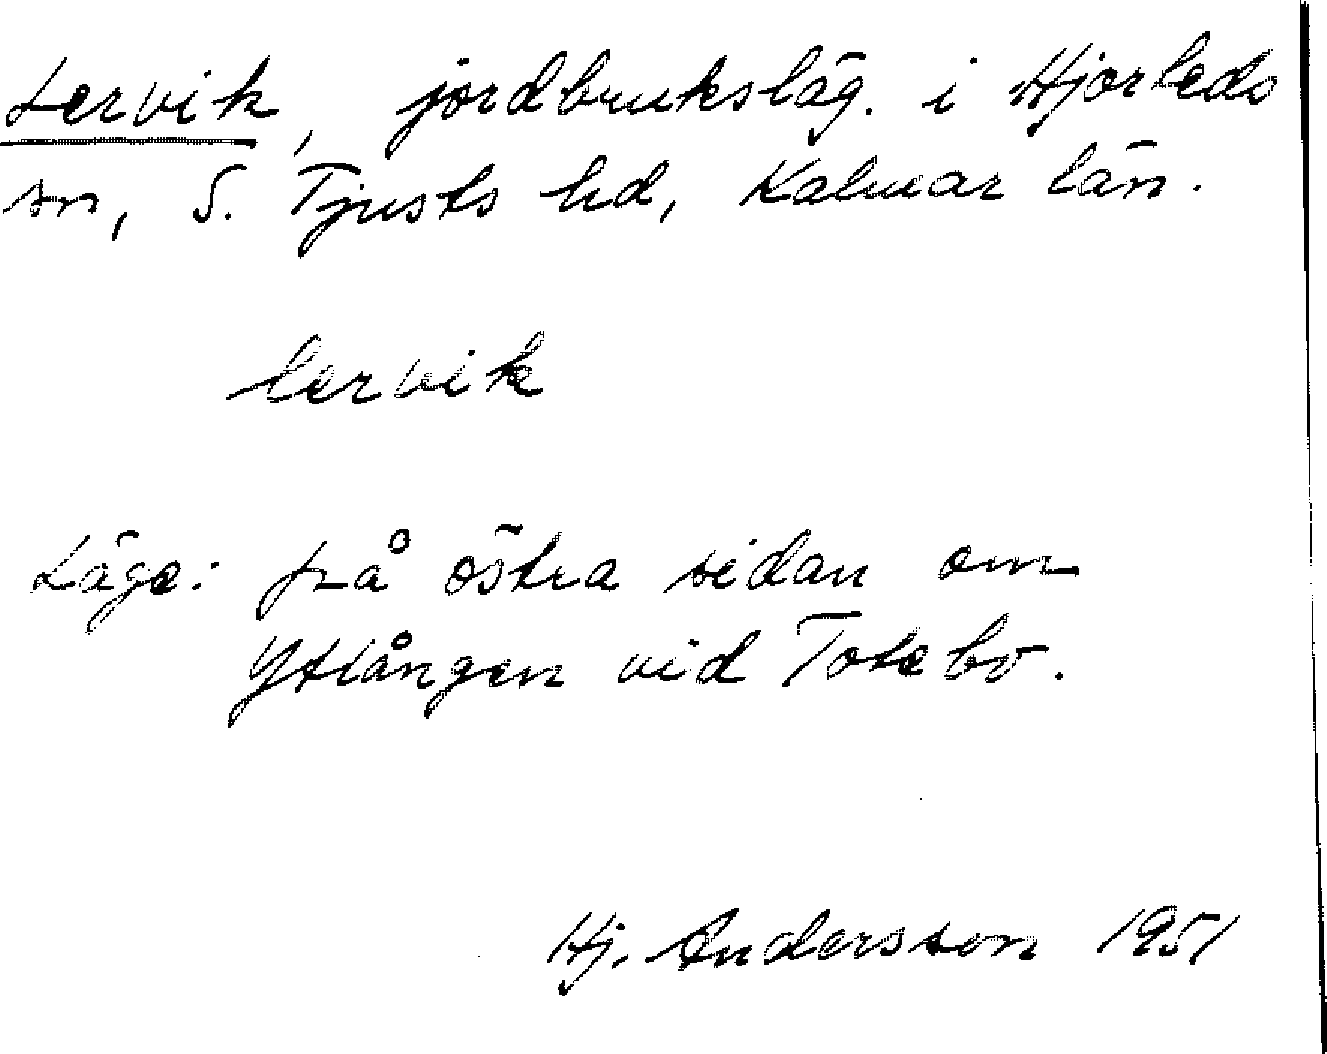 Lervik, jordbruksläg. i Hjorteds
sn, S. Tjusts hd, Kalmar län.
lervik
Läge: på östra sidan om
Yxlången vid Totebo.
Hj. Andersson 1951